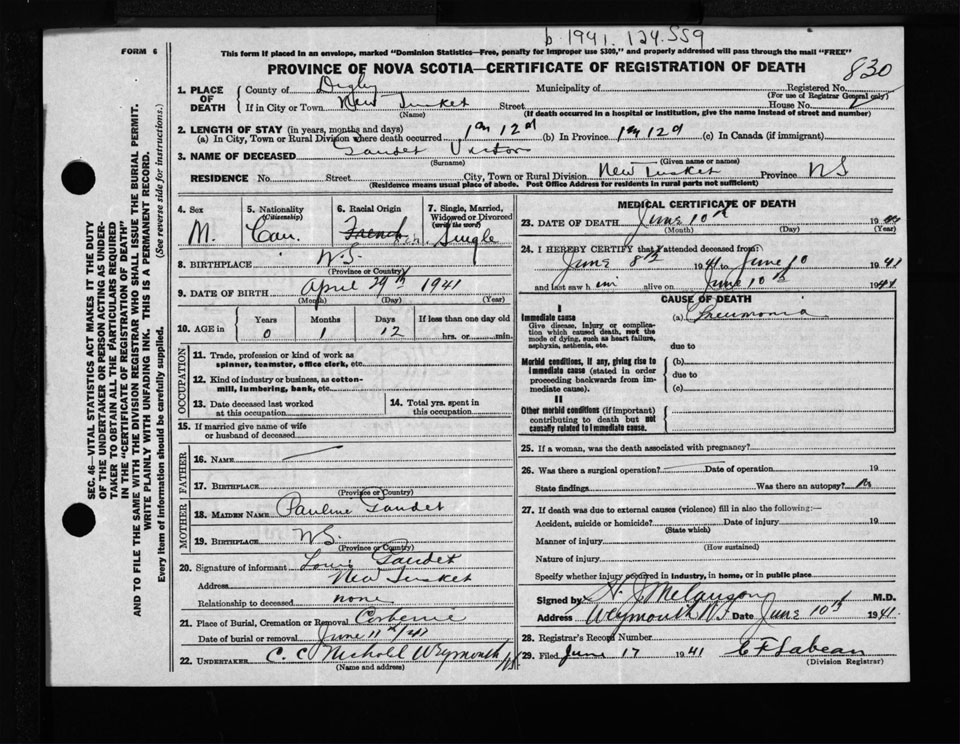 b. 1941. 124.559
FORM 6
This form if placed in an envelope, marked "Dominion Statistics—Free, penalty for improper use $300," and properly addressed will pass through the mail "FREE"
PROVINCE OF NOVA SCOTIA—CERTIFICATE OF REGISTRATION OF DEATH
830
1. PLACE OF DEATH
County of Digby Municipality of Registered No.
(For use of Registrar General only)
If in City or Town New Tusket Street House No.
(Name) (If death occurred in a hospital or institution, give the name instead of street and number)
2. LENGTH OF STAY (in years, months and days)
(a) In City, Town or Rural Division where death occurred 1m 12d (b) In Province 1m 12d (c) In Canada (if immigrant)
3. NAME OF DECEASED Gaudet Victor
(Surname) (Given name or names)
RESIDENCE No. Street City, Town or Rural Division New Tusket Province NS
(Residence means usual place of abode. Post Office Address for residents in rural parts not sufficient)
4. Sex
M.
5. Nationality (Citizenship)
Can.
6. Racial Origin
French
7. Single, Married, Widowed or Divorced (write the word)
Single
8. BIRTHPLACE N.S.
(Province or Country)
9. DATE OF BIRTH April 29th 1941
(Month) (Day) (Year)
10. AGE in
Years Months Days If less than one day old
0 1 12 hrs. or min.
OCCUPATION
11. Trade, profession or kind of work as spinner, teamster, office clerk, etc.
12. Kind of industry or business, as cotton-mill, lumbering, bank, etc.
13. Date deceased last worked at this occupation
14. Total yrs. spent in this occupation
15. If married give name of wife or husband of deceased
FATHER
16. NAME
17. BIRTHPLACE
(Province or Country)
MOTHER
18. MAIDEN NAME Pauline Gaudet
19. BIRTHPLACE N.S.
(Province or Country)
20. Signature of informant Gaudet
Address New Tusket
Relationship to deceased none
21. Place of Burial, Cremation or Removal Corberrie
Date of burial or removal June 11th/41
22. UNDERTAKER C. C. Nicholl Weymouth NS
(Name and address)
MEDICAL CERTIFICATE OF DEATH
23. DATE OF DEATH June 10th 19
(Month) (Day) (Year)
24. I HEREBY CERTIFY that I attended deceased from:
June 8th 1941 to June 10 1941
and last saw him alive on June 10th 1941
CAUSE OF DEATH
I
Immediate cause
Give disease, injury or complication which caused death, not the mode of dying, such as heart failure, asphyxia, asthenia, etc.
(a) Pneumonia
due to
Morbid conditions, if any, giving rise to immediate cause (stated in order proceeding backwards from immediate cause).
(b)
due to
(c)
II
Other morbid conditions (if important) contributing to death but not causally related to immediate cause.
25. If a woman, was the death associated with pregnancy?
26. Was there a surgical operation? Date of operation 19
State findings Was there an autopsy? No
27. If death was due to external causes (violence) fill in also the following:—
Accident, suicide or homicide? Date of injury 19
(State which)
Manner of injury
(How sustained)
Nature of injury
Specify whether injury occurred in industry, in home, or in public place
Signed by M.D.
Address Weymouth N.S. Date June 10th 1941.
28. Registrar's Record Number
29. Filed June 17 1941
(Division Registrar)
SEC. 46—VITAL STATISTICS ACT MAKES IT THE DUTY
OF THE UNDERTAKER OR PERSON ACTING AS UNDER-
TAKER TO OBTAIN ALL THE PARTICULARS REQUIRED
IN THE "CERTIFICATE OF REGISTRATION OF DEATH"
AND TO FILE THE SAME WITH THE DIVISION REGISTRAR WHO SHALL ISSUE THE BURIAL PERMIT.
WRITE PLAINLY WITH UNFADING INK. THIS IS A PERMANENT RECORD.
Every item of information should be carefully supplied. (See reverse side for instructions.)